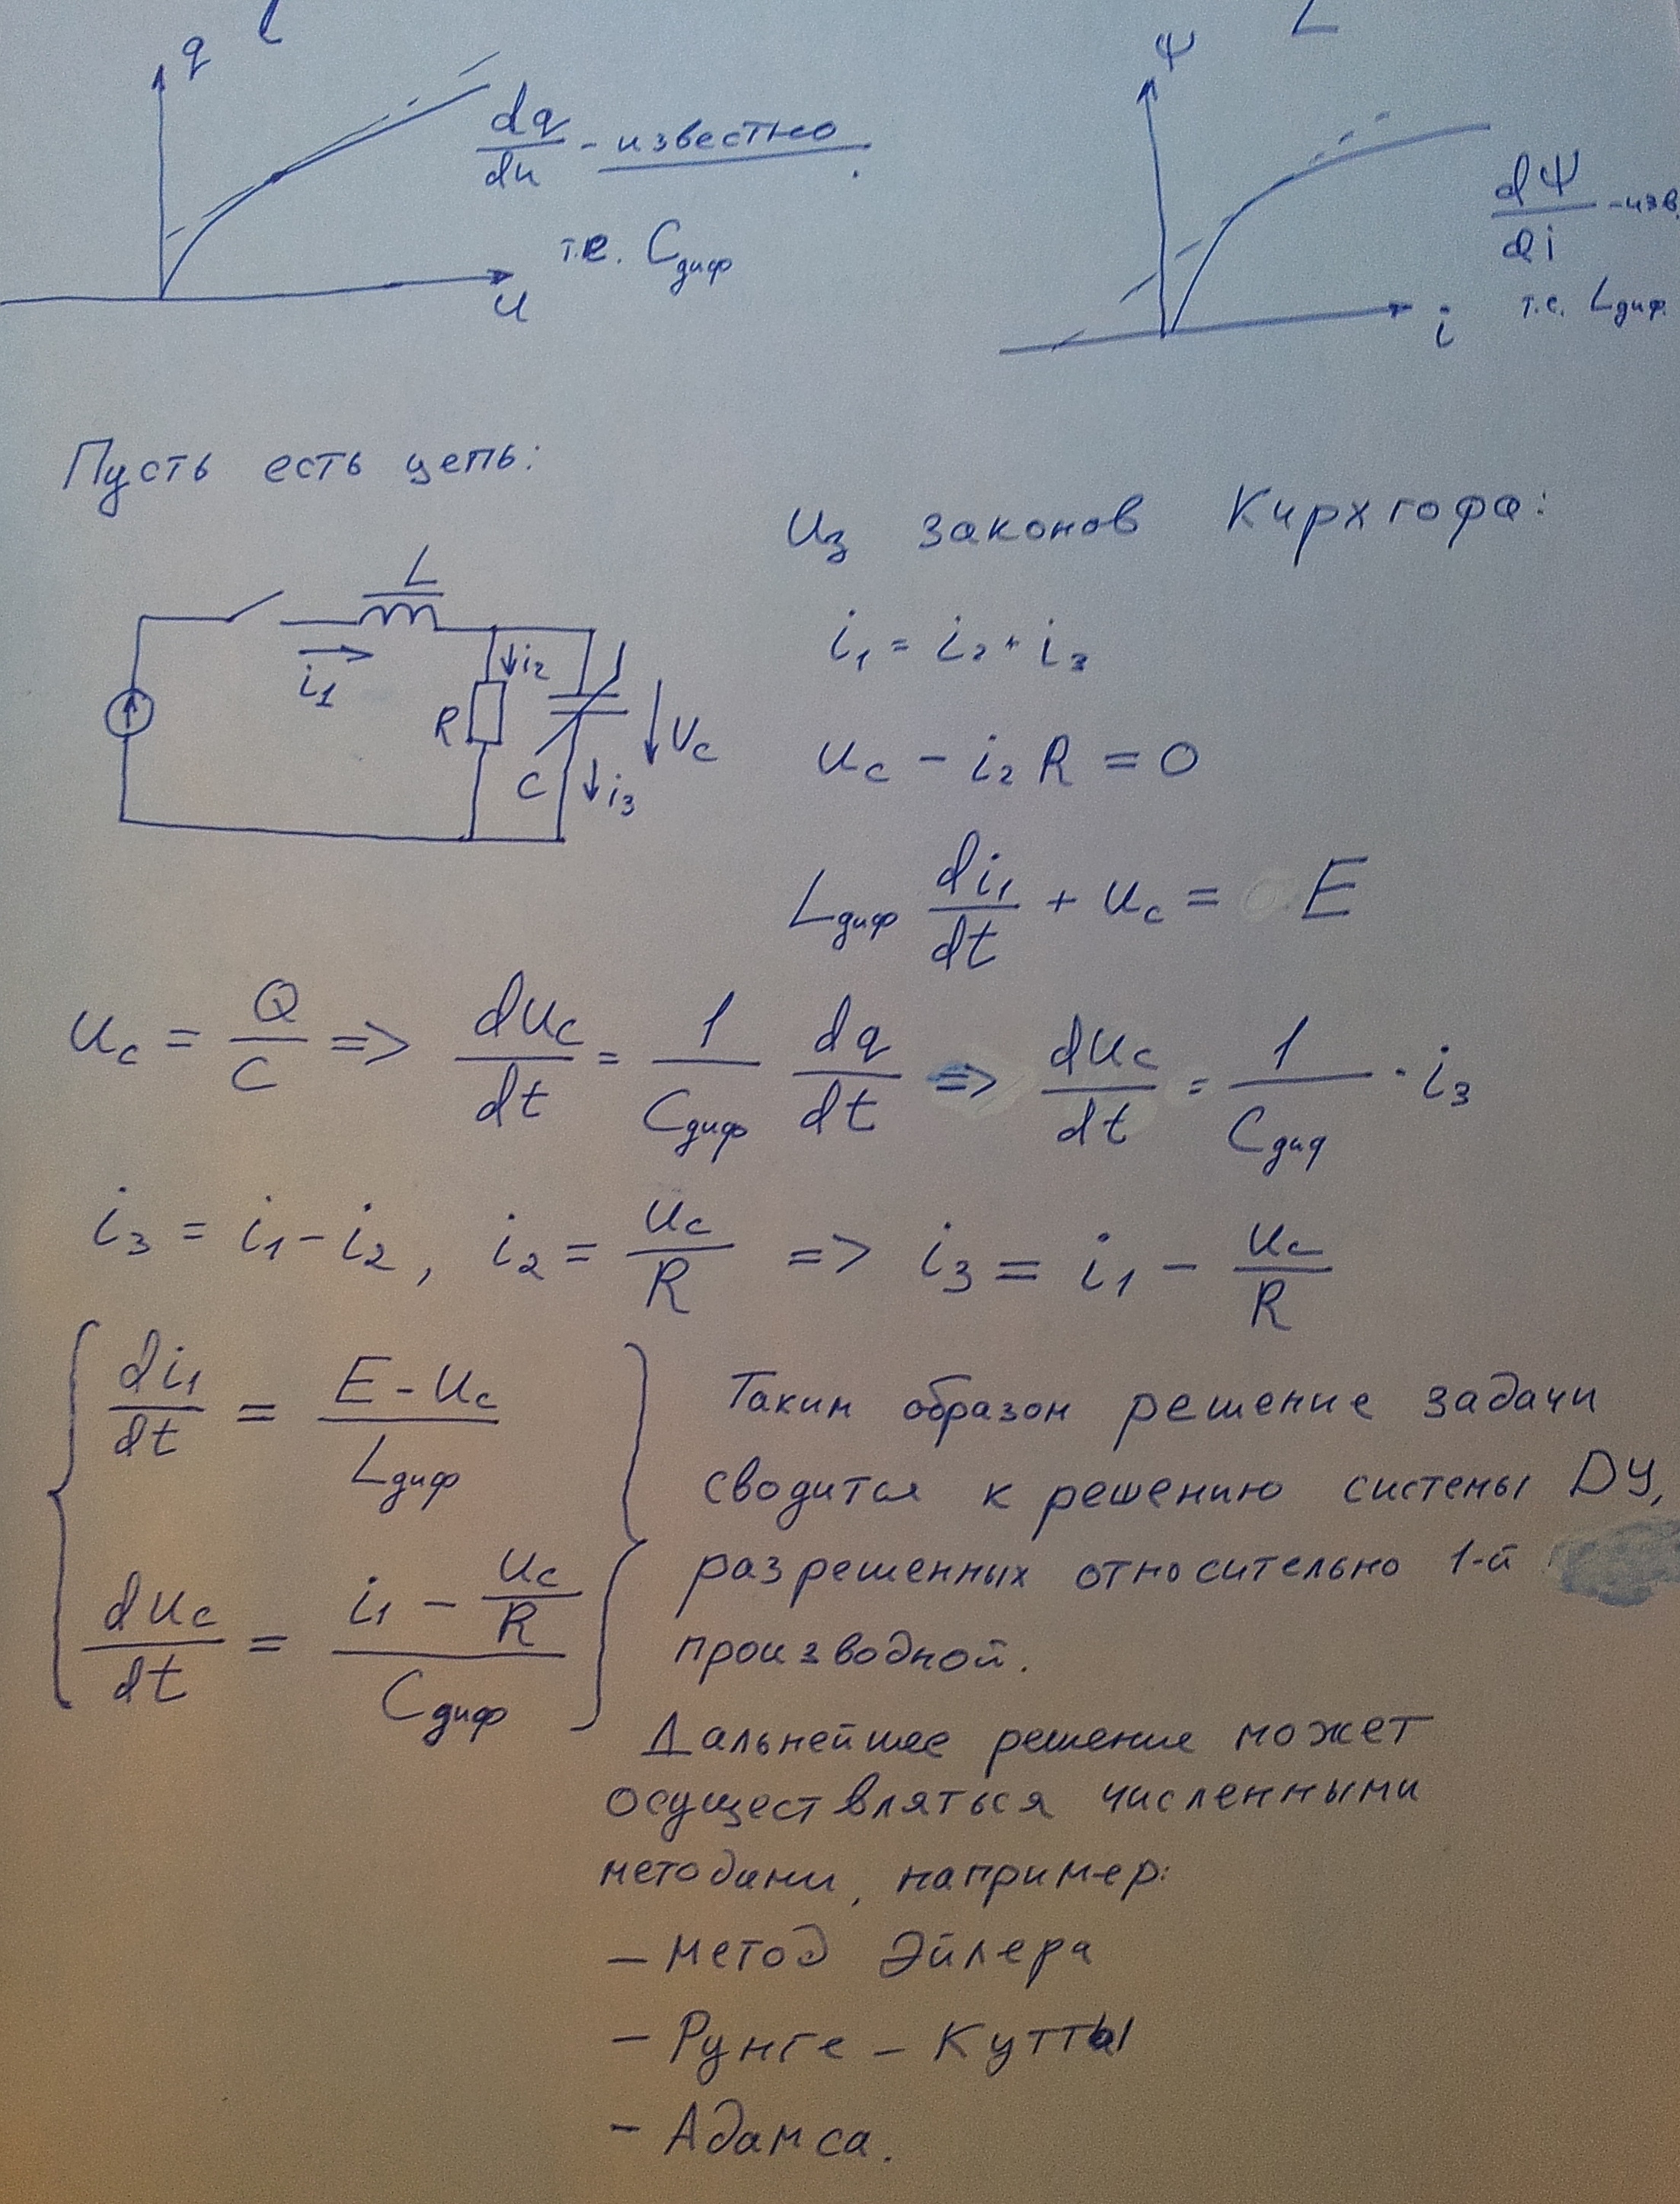 q
dq/du - известно.
т.е. Cдиф
u
L
Ψ
dΨ/di - изв.
т.е. Lдиф.
i
Пусть есть цепь:
Из законов Кирхгофа:
L
i1
i2
R
C
i3
Uc
i1 = i2 + i3
uc - i2 R = 0
Lдиф di1/dt + uc = E
uc = Q/C => duc/dt = 1/Cдиф dq/dt => duc/dt = 1/Cдиф · i3
i3 = i1 - i2, i2 = uc/R => i3 = i1 - uc/R
di1/dt = (E - uc)/Lдиф
duc/dt = (i1 - uc/R)/Cдиф
Таким образом решение задачи
сводится к решению системы ДУ,
разрешенных относительно 1-й
производной.
Дальнейшее решение может
осуществляться численными
методами, например:
- метод Эйлера
- Рунге - Кутты
- Адамса.